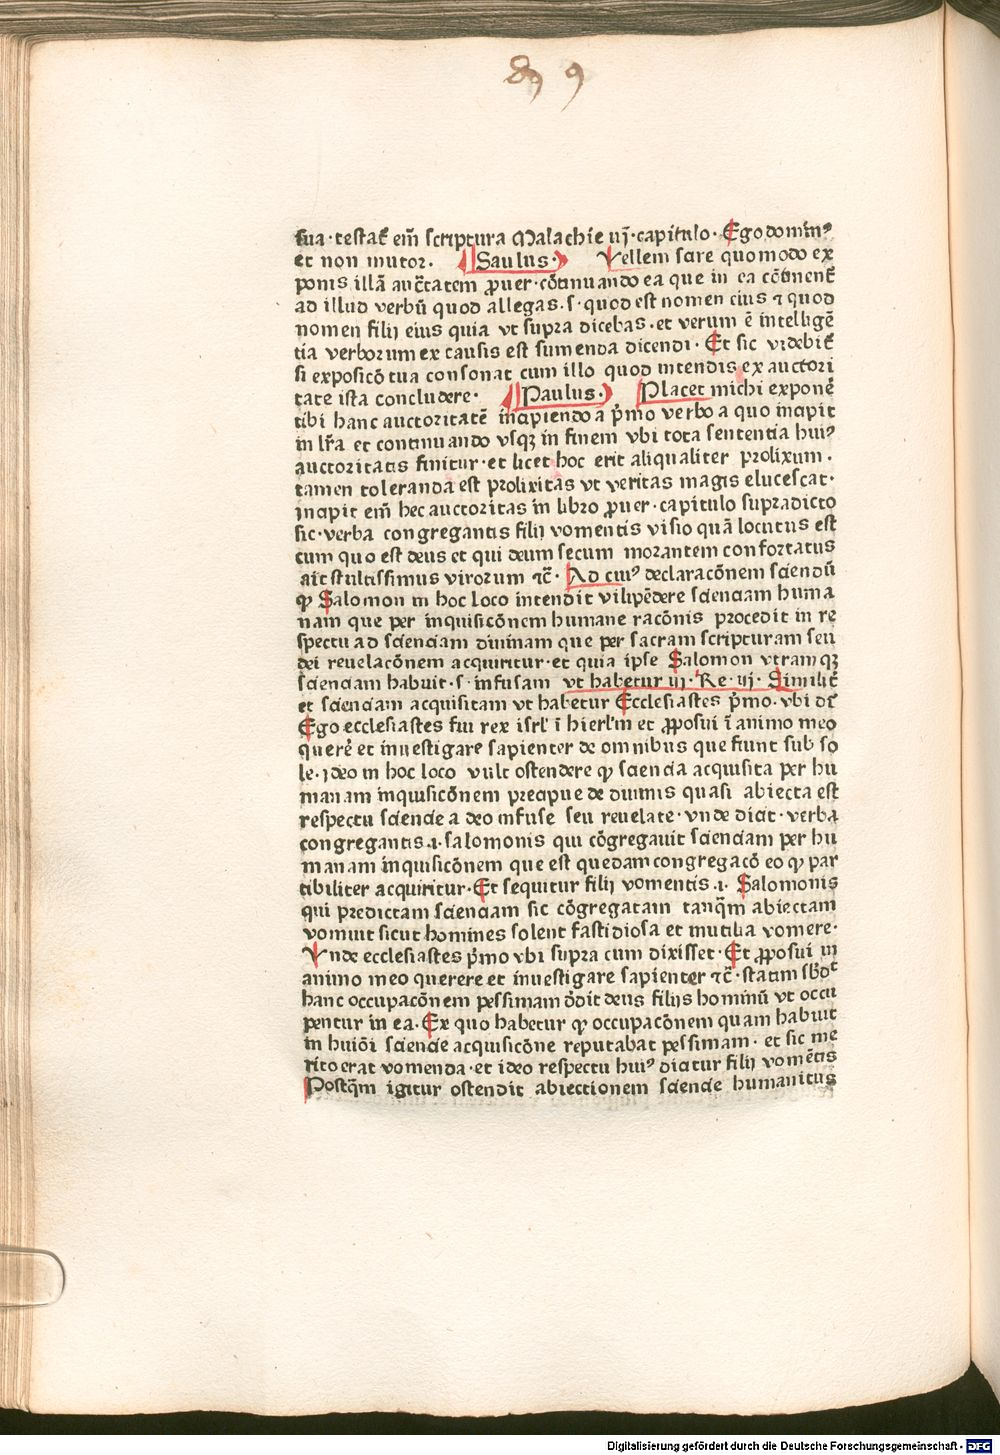 89 9
sua·testat᷒ em̄ scriptura Malachie iij·capitulo·Ego domin᷒
et non mutor. Saulus· Vellem scire quomodo ex
ponis illā auc̄tatem ꝓuer·cōtinuando ea que in ea cōtinent᷒
ad illud verbū quod allegas.s·quod est nomen eius ⁊ quod
nomen filij eius quia vt supra dicebas·et verum ē intelligē
tia verborum ex causis est sumenda dicendi·Et sic videbit᷒
si exposicō tua consonat cum illo quod intendis ex auctori
tate ista concludere· Paulus· Placet michi exponē
tibi hanc auctoritatē incipiendo a p̄mo verbo a quo incipit
in lr̄a et continuando vsqꝫ in finem vbi tota sententia hui᷒
auctoritatis finitur·et licet hoc erit aliqualiter prolixum.
tamen toleranda est prolixitas vt veritas magis elucescat·
incipit em̄ hec auctoritas in libro ꝓuer·capitulo supradicto
sic·verba congregantis filij vomentis visio quā locutus est
cum quo est deus et qui deum secum morantem confortatus
ait stultissimus virorum ⁊c̄· Ad cui᷒ declaracōnem sciendū
ꝙ Salomon in hoc loco intendit vilipēdere scienciam huma
nam que per inquisicōnem humane racōnis procedit in re
spectu ad scienciam diuinam que per sacram scripturam seu
dei reuelacōnem acquiritur·et quia ipse Salomon vtramqꝫ
scienciam habuit·s·infusam vt habetur iij·Re·iij·Similit᷒
et scienciam acquisitam vt habetur Ecclesiastes p̄mo·vbi dr̄
Ego ecclesiastes fui rex isrl' ī hierl'm et ꝓposui ī animo meo
querē et inuestigare sapienter de omnibus que fiunt sub so
le·ideo in hoc loco vult ostendere ꝙ sciencia acquisita per hu
manam inquisicōnem precipue de diuinis quasi abiecta est
respectu sciencie a deo infuse seu reuelate·vnde dicit·verba
congregantis.i.salomonis qui cōgregauit scienciam per hu
manam inquisicōnem que est quedam congregacō eo ꝙ par
tibiliter acquiritur·Et sequitur filij vomentis.i. Salomonis
qui predictam scienciam sic cōgregatam tanq̄m abiectam
vomuit sicut homines solent fastidiosa et mutilia vomere·
Vnde ecclesiastes p̄mo vbi supra cum dixisset·Et ꝓposui in
animo meo querere et inuestigare sapienter ⁊c̄·statim sb̄dt᷒
hanc occupacōnem pessimam d̄dit deus filijs hominū vt occu
pentur in ea·Ex quo habetur ꝙ occupacōnem quam habuit
in huiōi sciencie acquisicōne reputabat pessimam·et sic me
rito erat vomenda·et ideo respectu hui᷒ dicitur filij vomētis
Postq̄m igitur ostendit abiectionem sciencie humanitus
Digitalisierung gefördert durch die Deutsche Forschungsgemeinschaft - DFG